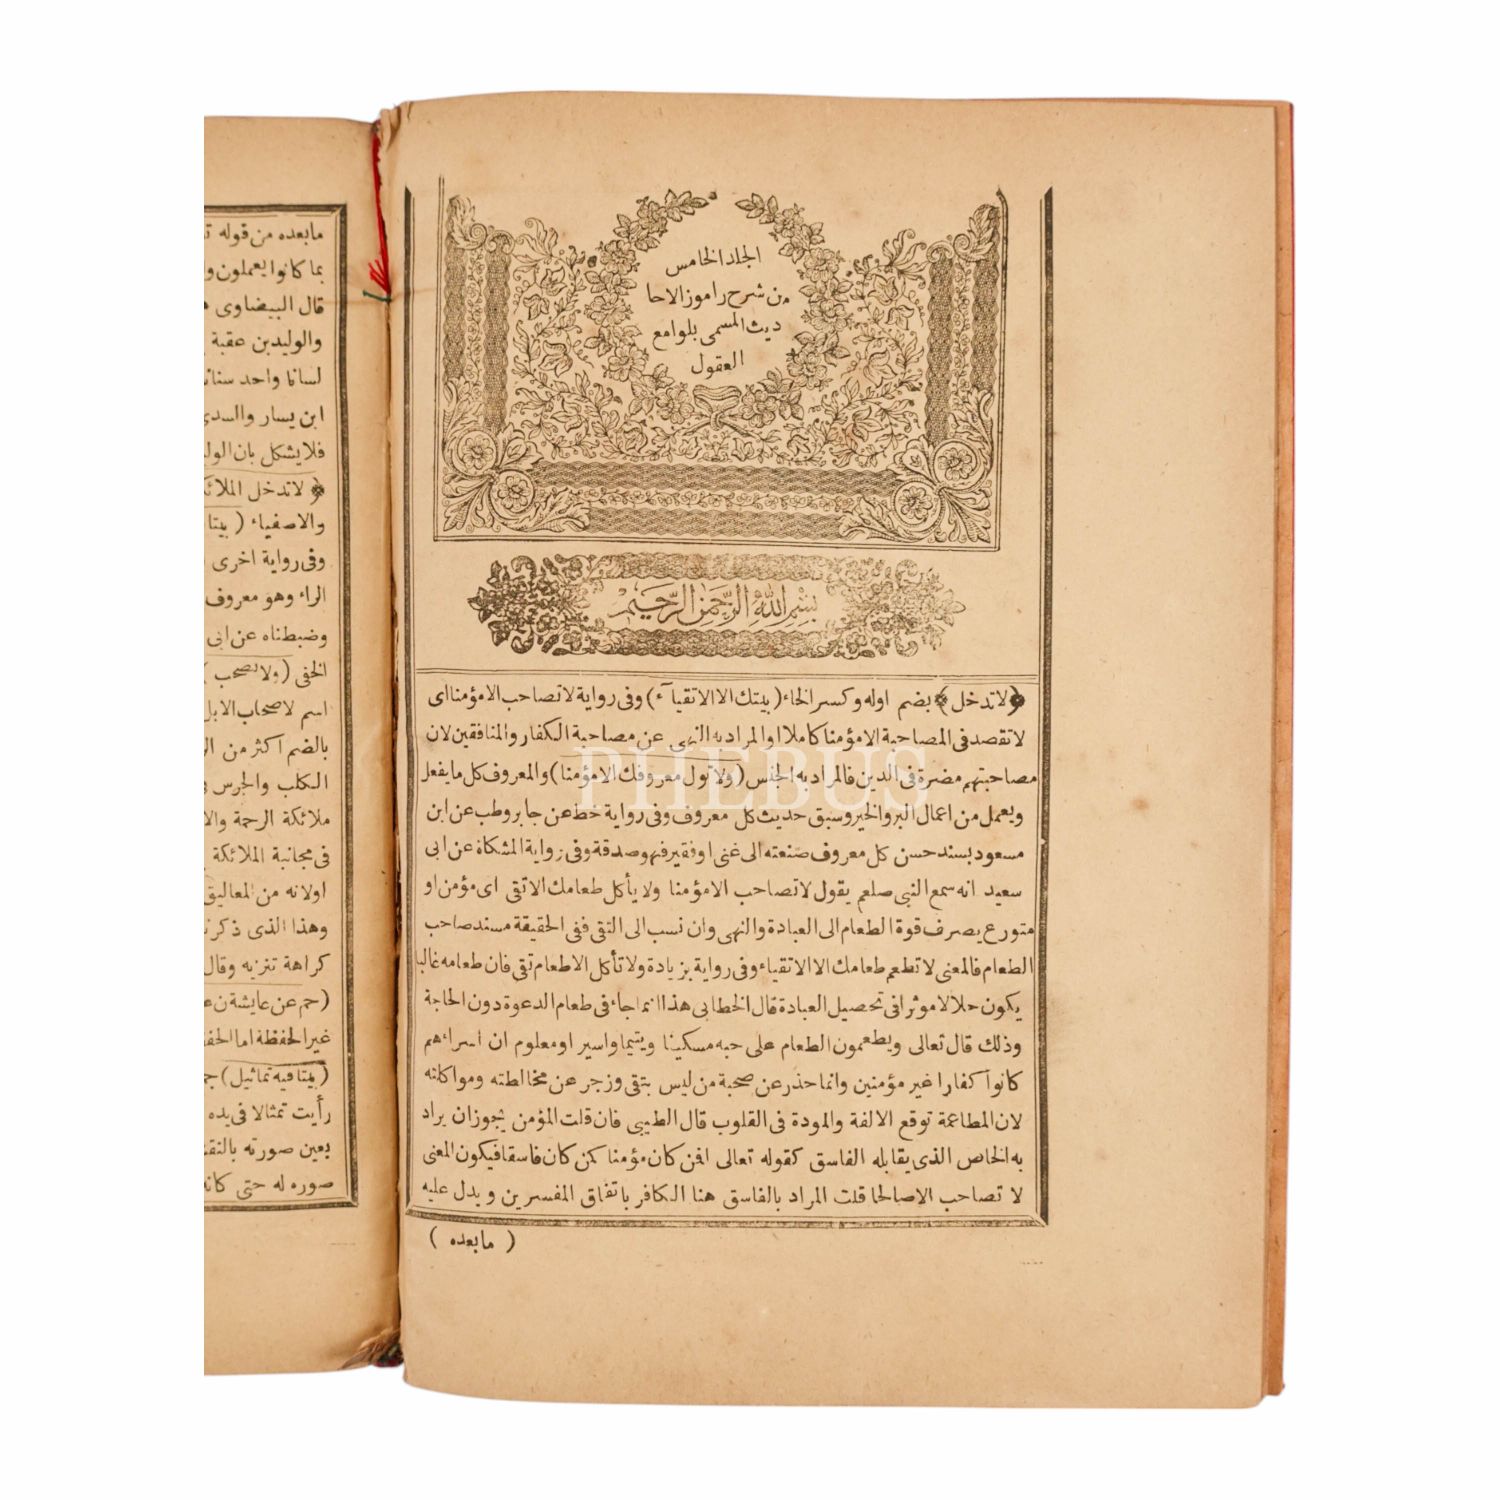 المجلد الخامس
من شرح راموز الاحا
ديث المسمى بلوامع
العقول
بسم الله الرحمن الرحيم
﴿لا تدخل﴾ بضم اوله وكسر الخاء (بيتك الا الاتقيآء) وفى رواية لا تصاحب الا مؤمنا اى
لا تقصد فى المصاحبة الا مؤمنا كاملا او المراد به النهى عن مصاحبة الكفار والمنافقين لان
مصاحبتهم مضرة فى الدين فالمراد به الجنس (ولا تول معروفك الا مؤمنا) والمعروف كل ما يفعل
ويعمل من اعمال البر والخير وسبق حديث كل معروف وفى رواية خط عن جابر وطب عن ابن
مسعود بسند حسن كل معروف صنعته الى غنى او فقير فهو صدقة وفى رواية المشكاة عن ابى
سعيد انه سمع النبى صلعم يقول لا تصاحب الا مؤمنا ولا يأكل طعامك الا تقى اى مؤمن او
متورع يصرف قوة الطعام الى العبادة والنهى وان نسب الى التقى ففى الحقيقة مسند صاحب
الطعام فالمعنى لا تطعم طعامك الا الاتقياء وفى رواية بزيادة ولا تأكل الا طعام تقى فان طعامه غالبا
يكون حلالا موثرا فى تحصيل العبادة قال الخطابى هذا انما جاء فى طعام الدعوة دون الحاجة
وذلك قال تعالى ويطعمون الطعام على حبه مسكينا ويتيما واسير او معلوم ان اسراءهم
كانوا كفارا غير مؤمنين وانما حذر عن صحبة من ليس بتقى وزجر عن مخالطته ومواكلته
لان المطاعمة توقع الالفة والمودة فى القلوب قال الطيبى فان قلت المؤمن يجوز ان يراد
به الخاص الذى يقابله الفاسق كقوله تعالى افمن كان مؤمنا كمن كان فاسقا فيكون المعنى
لا تصاحب الا صالحا قلت المراد بالفاسق هنا الكافر باتفاق المفسرين ويدل عليه
( مابعده )
مابعده من قوله
بما كانوا يعملون و
قال البيضاوى
والوليد بن عقبة
لسانا واحد
ابن يسار والسدى
فلا يشكل بان
﴿ لا تدخل
والاصفياء (
وفى رواية اخرى
الراء وهو معروف
وضبطناه عن ابى
الخفى (ولا تصحب
اسم لاصحاب
بالضم اكثر من
الكلب والجرس
ملائكة الرحمة
فى مجانبة الملائكة
اولانه من
وهذا الذى
كراهة تنزيه وقال
(حم عن عايشة
غير الحفظة اما
(بيتا فيه تماثيل)
رأيت تمثالا فى يده
بعين صورته
صوره له حتى
PHEBUS